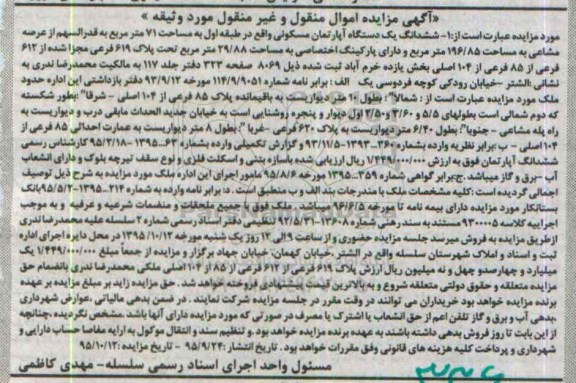 «آگهی مزایده اموال منقول و غیر منقول مورد وثیقه »
مورد مزایده عبارت است از:۱- ششدانگ یک دستگاه آپارتمان مسکونی واقع در طبقه اول به مساحت ۷۱ متر مربع به قدرالسهم از عرصه
مشاعی به مساحت ۱۹۶/۸۵ متر مربع و دارای پارکینگ اختصاصی به مساحت ۲۹/۸۸ متر مربع تحت پلاک ۶۱۹ فرعی مجزا شده از ۶۱۲
فرعی از ۸۵ فرعی از ۱۰۴ اصلی بخش یازده خرم آباد ثبت شده ذیل ۸۰۶۹ صفحه ۳۲۳ دفتر جلد ۱۱۷ به مالکیت محمدرضا ندری به
نشانی :الشتر -خیابان رودکی کوچه فردوسی یک الف : برابر نامه شماره ۱۱۴/۹/۹۰۵۱ مورخه ۹۳/۹/۱۲ دفتر بازداشتی این اداره حدود
ملک مورد مزایده عبارت است از : شمالا" : بطول ۱۰ متر دیواریست به باقیمانده پلاک ۸۵ فرعی از ۱۰۴ اصلی - شرقا" :بطور شکسته
که دوم شمالی است بطولهای ۵/۵ و ۳/۶۰ و۲/۵۰ اول دیوار و پنجره روشنایی است به خیابان جدید الحداث مابقی درب و دیواریست به
راه پله مشاعی - جنوبا": بطول ۶/۴۰ متر دیواریست به پلاک ۶۲۰ فرعی -غربا": بطول ۸ متر دیواریست به عمارت احداثی ۸۵ فرعی از
۱۰۴اصلی - ب :برابر نظریه وارده بشماره ۳۶۰-۱۳۹۳-۹۳/۱۱/۵ و گزارش تکمیلی وارده بشماره ۶۳-۱۳۹۵-۹۵/۲/۱۸ کارشناس رسمی
ششدانگ آپارتمان فوق به ارزش ۱/۴۴۹/۰۰۰/۰۰۰ ریال ارزیابی شده باسازه بتنی و اسکلت فلزی و نوع سقف تیرچه بلوک و دارای انشعاب
آب - برق و گاز میباشد .ج:برابر گواهی شماره ۳۵۹-۱۳۹۵ مورخ ۹۵/۸/۶ مامور اجرای این اداره ملک مورد مزایده به شرح ذیل توصیف
اجمالی گردیده است :کلیه مشخصات ملک با مندرجات بند الف و ب منطبق است .د: برابر نامه وارده به شماره ۲۱۴-۱۳۹۵-۹۵/۵/۲بانک
بستانکار مورد مزایده دارای بیمه نامه تا مورخه ۹۶/۶/۵ میباشد. ملک فوق با جمیع ملحقات و منضمات شرعیه و عرفیه و به موجب
اجراییه کلاسه ۹۳۰۰۰۰۵ مستند به سند رهنی شماره ۱۳۶۰۸-۹۲/۵/۳۱ تنظیمی دفتر اسناد رسمی شماره ۲ سلسله علیه محمدرضا ندری
ازطریق مزایده به فروش میرسد جلسه مزایده حضوری و از ساعت ۹ الی ۱۲ روز یک شنبه مورخه ۱۳۹۵/۱۰/۱۲ در محل دایره اجرای اداره
ثبت و اسناد و املاک شهرستان سلسله واقع در الشتر ،خیابان کهمان- خیابان جهاد برگزار و مزایده از جمعاً مبلغ ۱/۴۴۹/۰۰۰/۰۰۰ یک
میلیارد و چهارصدو چهل و نه میلیون ریال ارزش پلاک ۶۱۹ فرعی از ۶۱۲ فرعی از ۸۵ فرعی از ۱۰۴ اصلی ملکی محمدرضا ندری بانضمام حق
مزایده متعلقه و حقوق دولتی متعلقه شروع و به بالاترین قیمت پیشنهادی فروخته خواهد شد. حق مزایده زاید بر مبلغ مزایده بر عهده
برنده مزایده خواهد بود خریداران می توانند در وقت مقرر در جلسه مزایده شرکت نمایند . در ضمن بدهی مالیاتی ،عوارض شهرداری
،بدهی آب و برق و گاز تلفن اعم از حق انشعاب یا اشتراک یا مصرف در صورتی که مورد مزایده دارای آنها باشد .مشخص نگردیده ،چنانچه
از این بابت تا روز فروش بدهی داشته باشند به عهده برنده مزایده خواهد بود .و تنظیم سند و انتقال موکول به ارایه مفاصا حساب دارایی و
شهرداری و پرداخت کلیه هزینه های قانونی وفق مقررات خواهد بود . تاریخ انتشار :۹۵/۹/۲۴ - تاریخ مزایده :۹۵/۱۰/۱۲
مسئول واحد اجرای اسناد رسمی سلسله- مهدی کاظمی